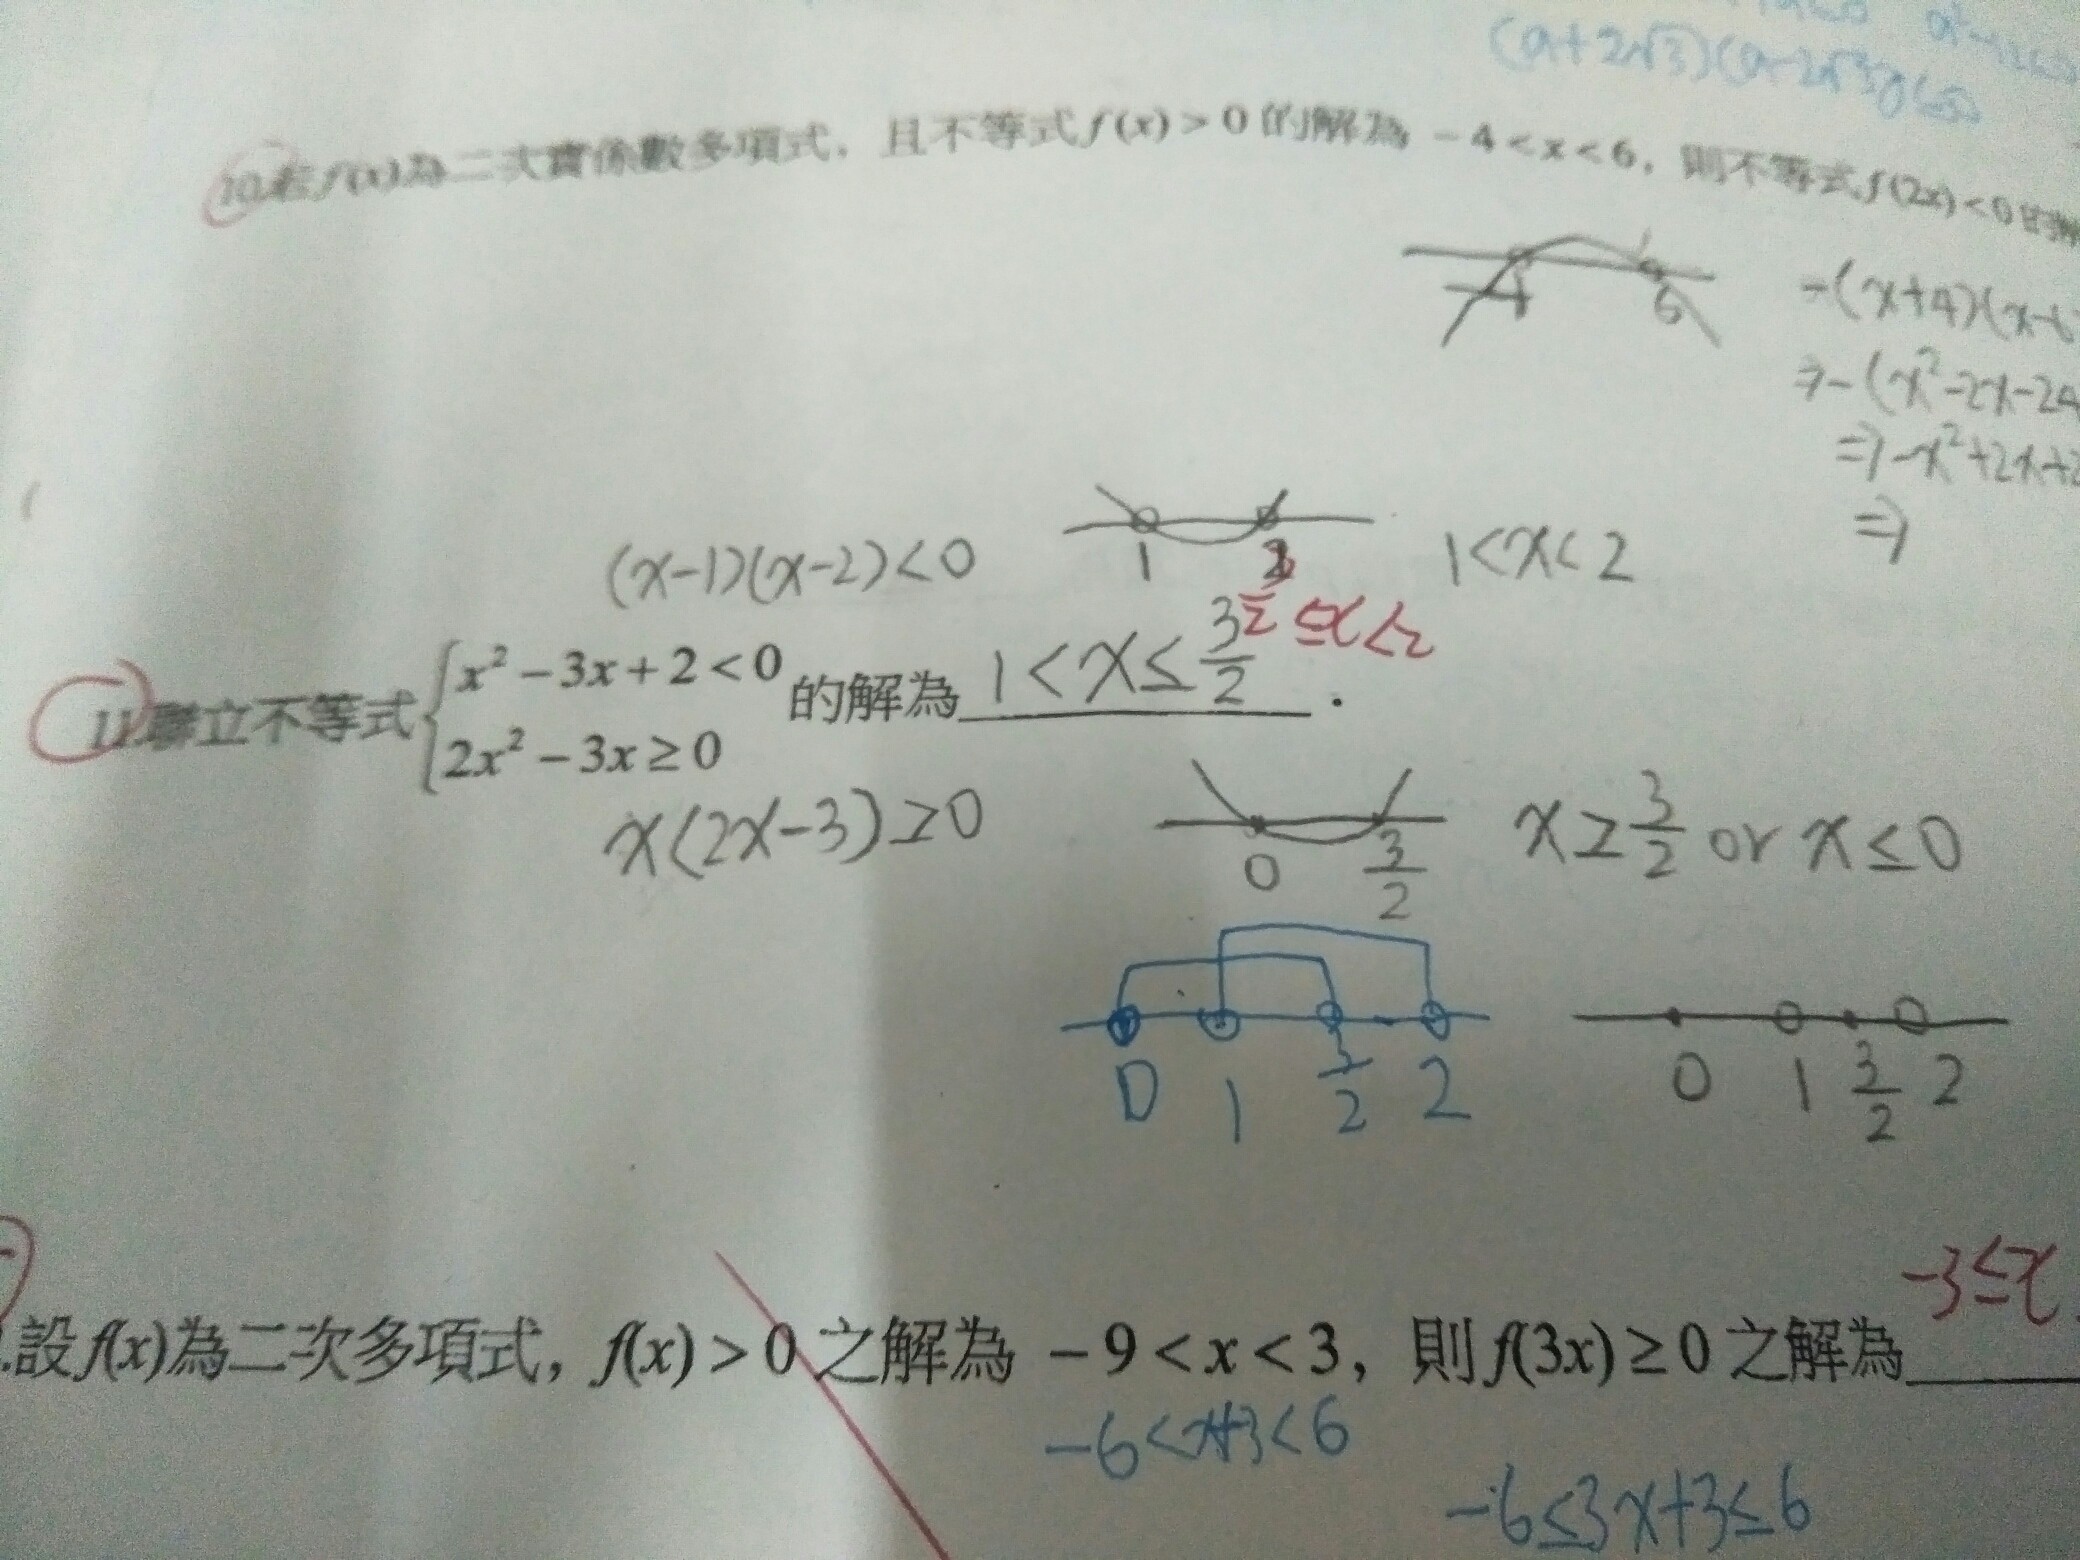 (a+2√3)(a-2√3)<0
10.若f(x)為二次實係數多項式，且不等式f(x)>0的解為 -4<x<6，則不等式f(2x)<0的解
-4 6
-(x+4)(x-6
⇒-(x²-2x-24
⇒-x²+2x+2
⇒
(x-1)(x-2)<0 1 2 1<x<2
3/2 ≤x<2
11.聯立不等式{x²-3x+2<0 的解為 1<x≤3/2．
2x²-3x≥0
x(2x-3)≥0 0 3/2 x≥3/2 or x≤0
0 1 3/2 2 0 1 3/2 2
-3≤x
.設f(x)為二次多項式，f(x)>0之解為 -9<x<3，則f(3x)≥0之解為
-6<x+3<6
-6≤3x+3≤6